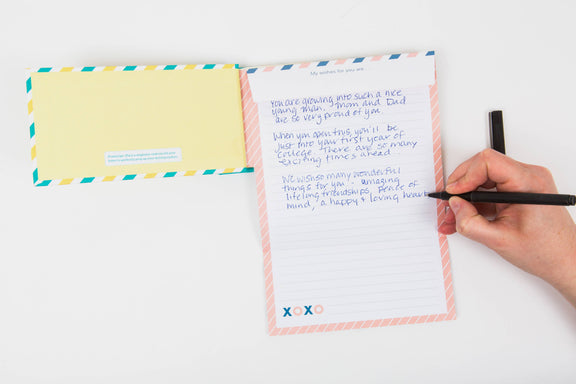 My wishes for you are
You are growing into such a nice
young man. Mom and Dad
are so very proud of you.
When you open this, you'll be
just into your first year of
college. There are so many
exciting times ahead.
We wish so many wonderful
things for you - amazing
lifelong friendships, peace of
mind, a happy + loving hear
XOXO